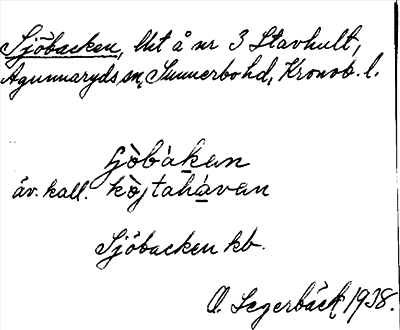 Sjöbacken, lht å nr 3 Stavhult,
Agunnaryds sn, Sunnerbo hd, Kronob. l.
ʃö̀bàkan
äv. kall. kòjtahávan
Sjöbacken kb.
O. Segerbäck 1938.